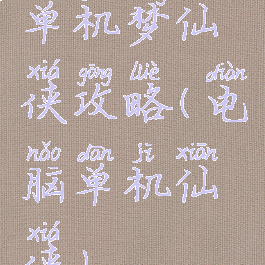 单机梦仙
xiá gōng lüè diàn
侠攻略(电
nǎo dān jī xiān
脑单机仙
xiá
侠)